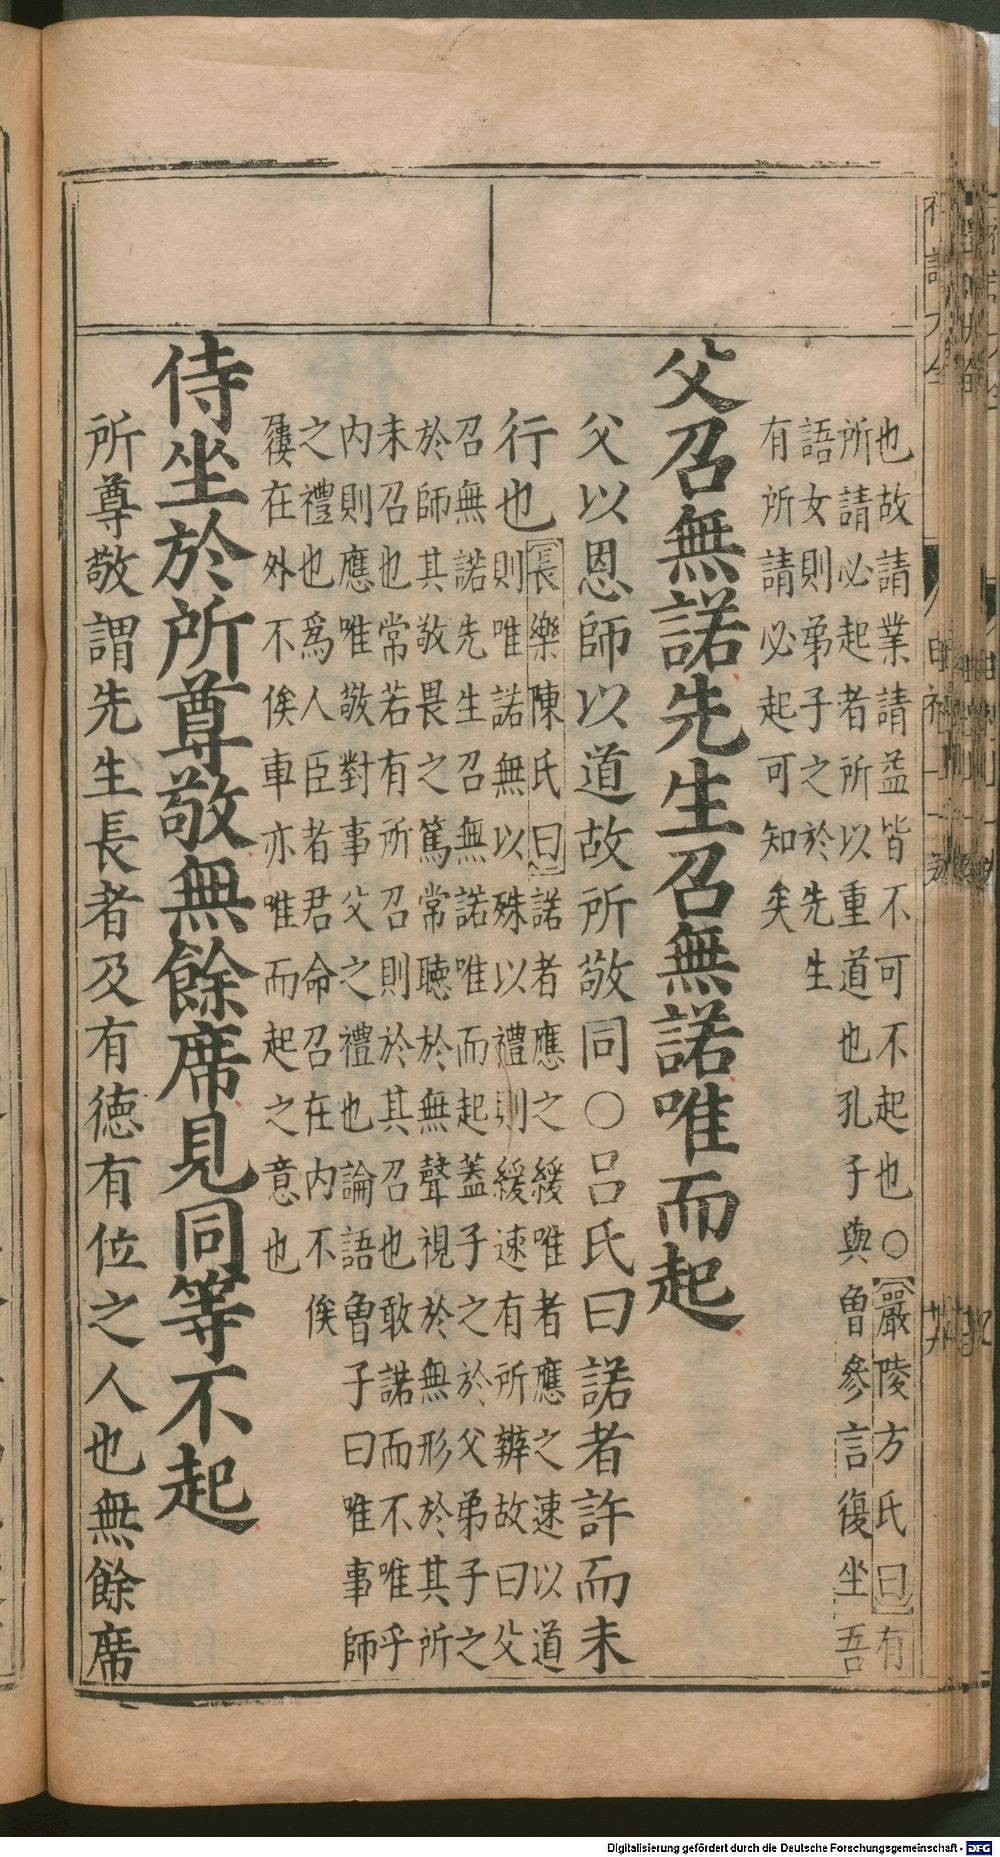 也故請業請益皆不可不起也○嚴陵方氏曰有
所請必起者所以重道也孔子與魯參言復坐吾
語女則弟子之於先生
有所請必起可知矣
父召無諾先生召無諾唯而起
父以恩師以道故所敬同○呂氏曰諾者許而未
行也
長樂陳氏曰諾者應之緩唯者應之速以道
則唯諾無以殊以禮則緩速有所辨故曰父
召無諾先生召無諾唯而起蓋子之於父弟子之
於師其敬畏之篤常聽於無聲視於無形於其所
未召也常若有所召則於其召也敢諾而不唯乎
內則應唯敬對事父之禮也論語魯子曰唯事師
之禮也爲人臣者君命召在內不俟
屨在外不俟車亦唯而起之意也
侍坐於所尊敬無餘席見同等不起
所尊敬謂先生長者及有德有位之人也無餘席
Digitalisierung gefördert durch die Deutsche Forschungsgemeinschaft - DFG